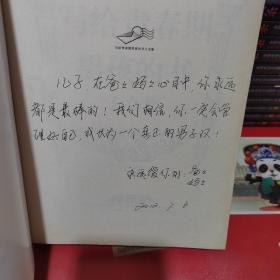 儿子 在爸爸妈妈心目中，你永远
都是最棒的！我们相信，你一定会管
理好自己，成长为一个真正的男子汉！
永远爱你的：爸爸
妈妈
2012.7.8